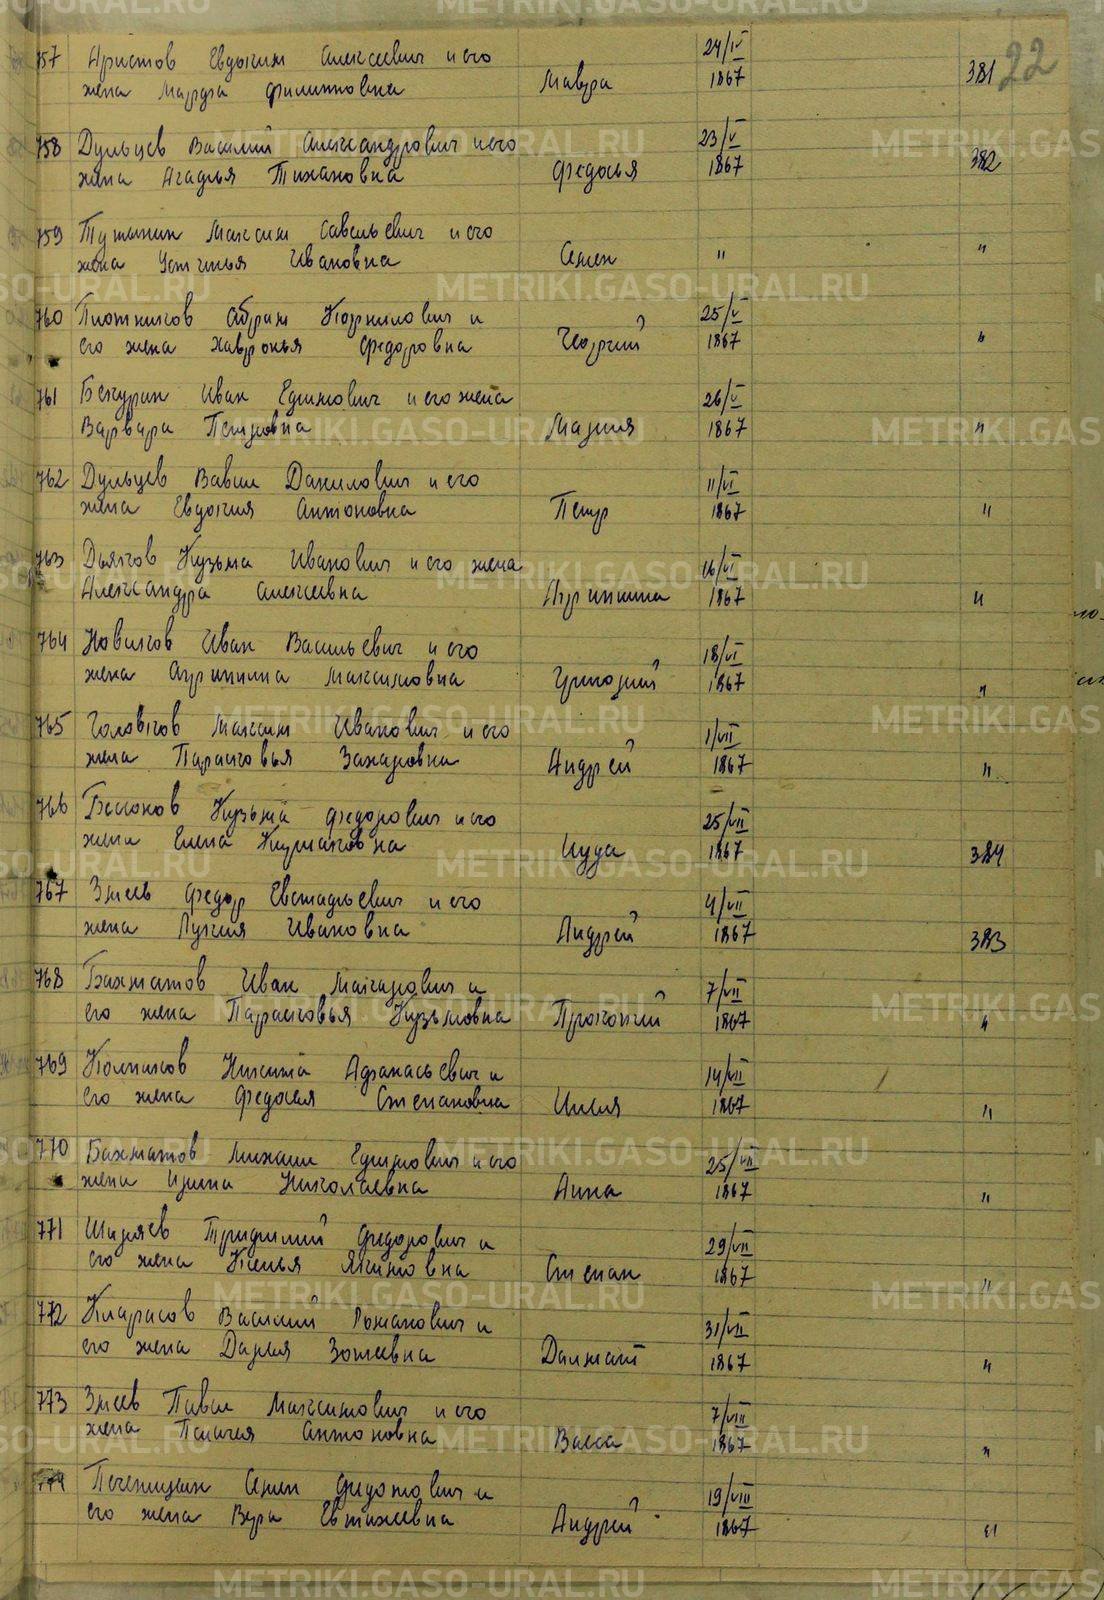 22
757 Аристов Евдоким Алексеевич и его
жена Марфа Филипповна Мавра 24/IV 1867 381
758 Дульцев Василий Александрович и его
жена Агафья Тихановна Федосья 23/V 1867 382
759 Максим Савельевич и его
жена Устинья Ивановна Семен " "
760 Плотников Абрам Корнилович и
его жена Хавронья Федоровна Георгий 25/V 1867 "
761 Иван Ефимович и его жена
Варвара Петровна Мария 26/V 1867 "
762 Дульцев Вавил Данилович и его
жена Евдокия Антоновна Петр 11/VI 1867 "
763 Дьяков Кузьма Иванович и его жена
Александра Алексеевна Агрипина 16/VI 1867 "
764 Новиков Иван Васильевич и его
жена Агрипина Максимовна Григорий 18/VI 1867 "
765 Головков Максим Иванович и его
жена Парасковья Захаровна Андрей 1/VII 1867 "
766 Кузьма Федорович и его
жена Елена Иуда 25/VII 1867 384
767 Змеев Федор Евстафьевич и его
жена Лукия Ивановна Андрей 4/VII 1867 383
768 Бахматов Иван Макарович и
его жена Парасковья Кузьмовна Прокопий 7/VII 1867 "
769 Колпаков Никита Афанасьевич и
его жена Федосья Степановна Илья 14/VII 1867 "
770 Бахматов Михаил Ефимович и его
жена Ирина Николаевна Анна 25/VII 1867 "
771 Ширяев Трифилий Федорович и
его жена Ксенья Якимовна Степан 29/VII 1867 "
772 Василий Романович и
его жена Дарья Зотеевна Далмат 31/VII 1867 "
773 Змеев Павел Максимович и его
жена Пелагея Антоновна Васса 7/VIII 1867 "
774 Семен Федотович и
его жена Вера Евтихеевна Андрей 19/VIII 1867 "
METRIKI.GASO-URAL.RU